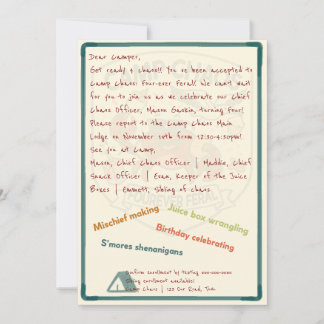 Dear Camper,
Get ready 4 chaos!! You've been accepted to
Camp Chaos: Four-ever Feral! We can't wait
for you to join us as we celebrate our Chief
Chaos Officer, Mason Gaskin, turning Four!
Please report to the Camp Chaos Main
Lodge on November 14th from 12:30-4:30pm!
See you at Camp,
Mason, Chief Chaos Officer | Maddie, Chief
Snack Officer | Evan, Keeper of the Juice
Boxes | Emmett, Sibling of chaos
FOUREVER FERAL
Mischief making
Juice box wrangling
Birthday celebrating
S'mores shenanigans
Confirm enrollment by texting xxx-xxx-xxxx
Sibling enrollment available!
Camp Chaos | 123 Our Road,